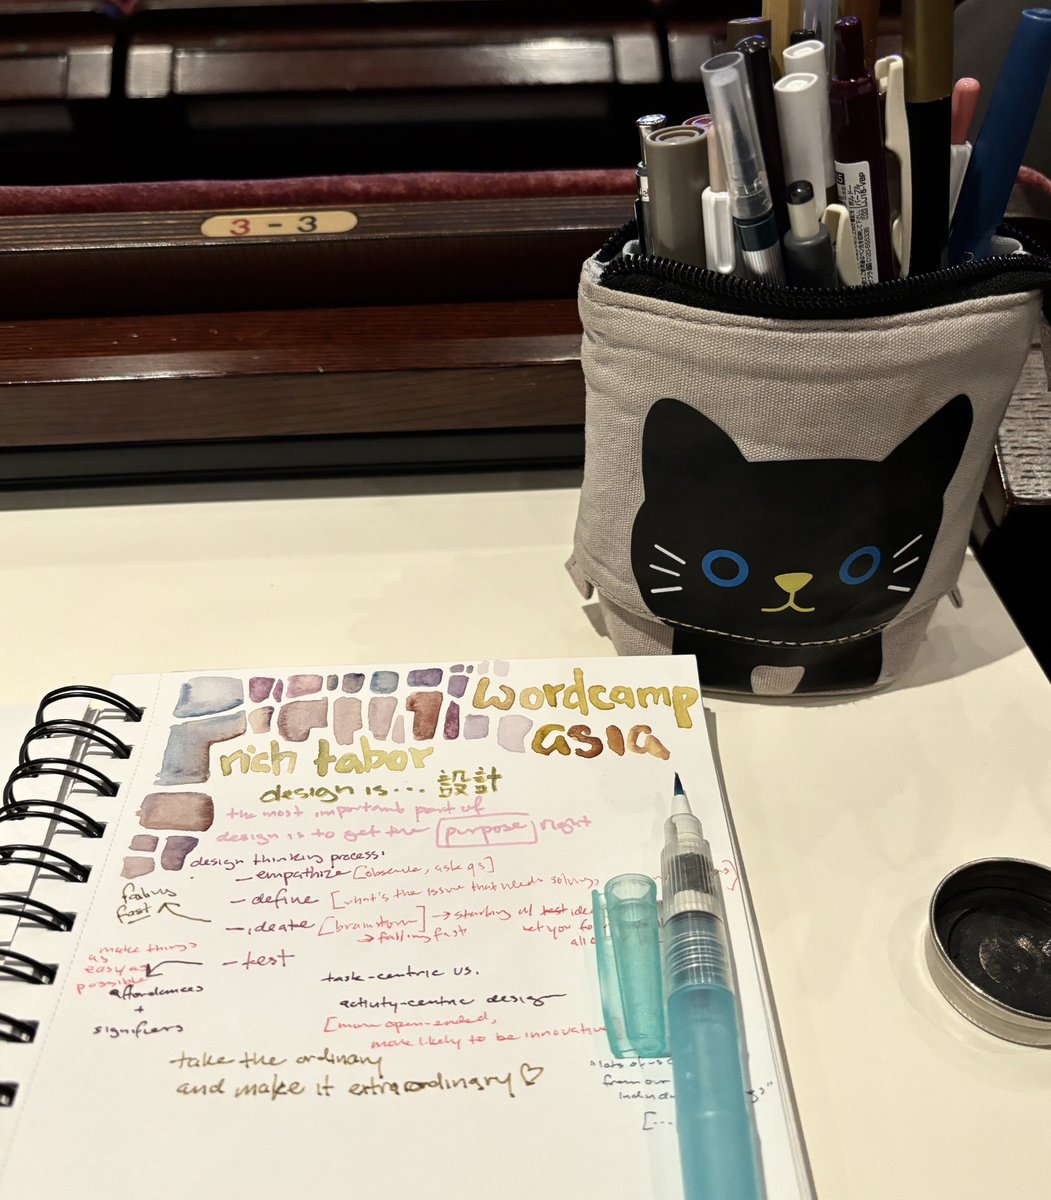 3 - 3
wordcamp
asia
rich tabor
design is... 設計
the most important part of
design is to get the purpose right
design thinking process:
- empathize [observe, ask qs]
- define [what's the issue that needs solving,
failing
fast
- ideate [brainstorm] → starting w/ test
→ failing fast
let you
make things
as
easy as
possible
- test
affordances
+
signifiers
task-centric vs.
activity-centric design
[more open-ended,
more likely to be innovative
take the ordinary
and make it extraordinary ♡
"lots of us
from our
[...